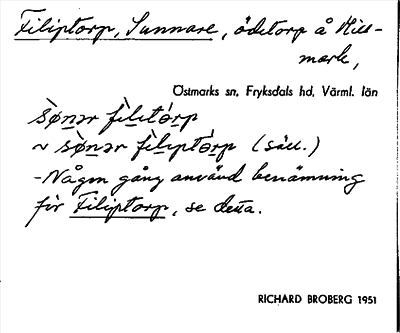 Filiptorp, Sunnare, ödetorp å Hill-
mark,
Östmarks sn, Fryksdals hd, Värml. län
sǿnǝr fìlitórp
~ sǿnǝr fìliptórp (säll.)
-Någon gång använd benämning
för Filiptorp, se detta.
RICHARD BROBERG 1951